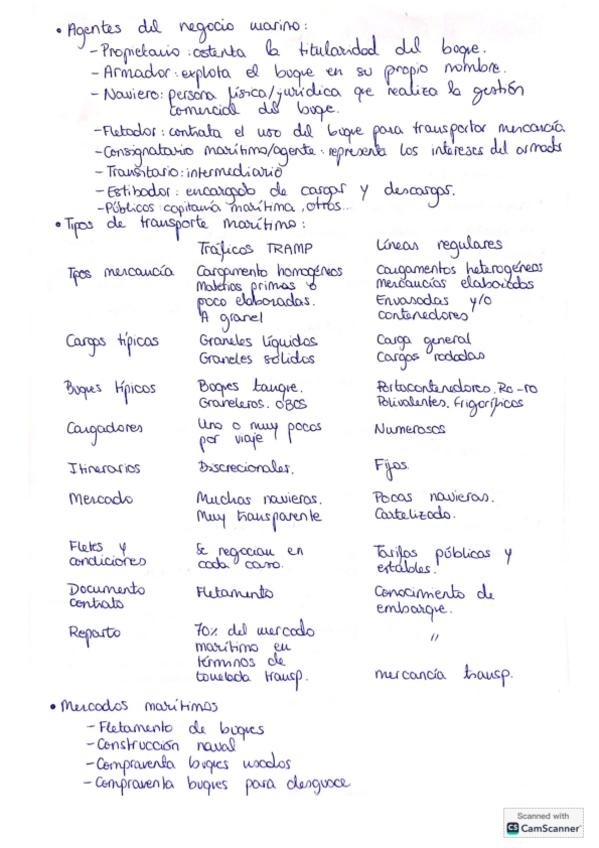 • Agentes del negocio marino:
- Propietario: ostenta la titularidad del buque.
- Armador: explota el buque en su propio nombre.
- Naviero: persona física/jurídica que realiza la gestión
comercial del buque.
- Fletador: contrata el uso del buque para transportar mercancía
- Consignatario marítimo/agente: representa los intereses del armador
- Transitario: intermediario
- Estibador: encargado de cargar y descargar.
- Públicos: capitanía marítima, otros...
• Tipos de transporte marítimo:
Tráficos TRAMP Líneas regulares
Tipos mercancía Cargamento homogéneos Cargamentos heterogéneos
Materias primas o mercancías elaboradas
poco elaboradas. Envasadas y/o
A granel contenedores
Cargas típicas Graneles líquidos Carga general
Graneles sólidos Cargas rodadas
Buques típicos Buques tanque. Portacontenedores. Ro-ro
Graneleros. OBOS Polivalentes. Frigoríficos
Cargadores Uno o muy pocos Numerosos
por viaje
Itinerarios Discrecionales. Fijos.
Mercado Muchas navieras. Pocas navieras.
Muy transparente Cartelizado.
Fletes y Se negocian en Tarifas públicas y
condiciones cada caso. estables.
Documento Fletamento Conocimiento de
contrato embarque.
Reparto 70% del mercado "
marítimo en
términos de
tonelada transp. mercancía transp.
• Mercados marítimos
- Fletamento de buques
- Construcción naval
- Compraventa buques usados
- Compraventa buques para desguace
Scanned with
CS CamScanner